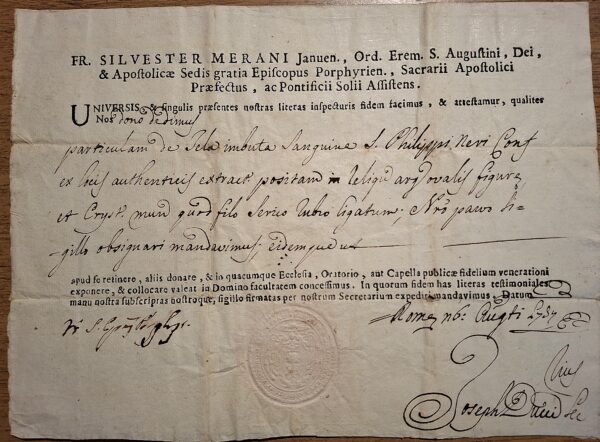 FR. SILVESTER MERANI Januen., Ord. Erem. S. Augustini, Dei,
& Apostolicæ Sedis gratia Episcopus Porphyrien., Sacrarii Apostolici
Præfectus, ac Pontificii Solii Assistens.
UNIVERSIS, & singulis præsentes nostras literas inspecturis fidem facimus, & attestamur, qualiter
Nos dono dedimus
particulam de Tela imbuta Sanguine S. Philippi Neri Conf
ex locis authenticis extract positam in reliqu arg ovalis figure
et Cryst. mun quod filo serico rubro ligatum; Nro parvo si-
gillo obsignari mandavimus; eidemque ut
apud se retinere, aliis donare, & in quacumque Ecclesia, Oratorio, aut Capella publicæ fidelium venerationi
exponere, & collocare valeat in Domino facultatem concessimus. In quorum fidem has literas testimoniales
manu nostra subscriptas nostroque, sigillo firmatas per nostrum Secretarium expediri mandavimus. Datum
Fr. S.
Rome
Joseph